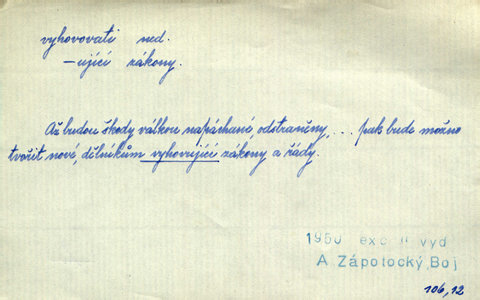 vyhovovati ned.
–ující zákony.
Až budou škody válkou napáchané, odstraněny, ... pak bude možno
tvořit nové, dělníkům vyhovující zákony a řády.
1950 exc II vyd
A. Zápotocký, Boj
106,12